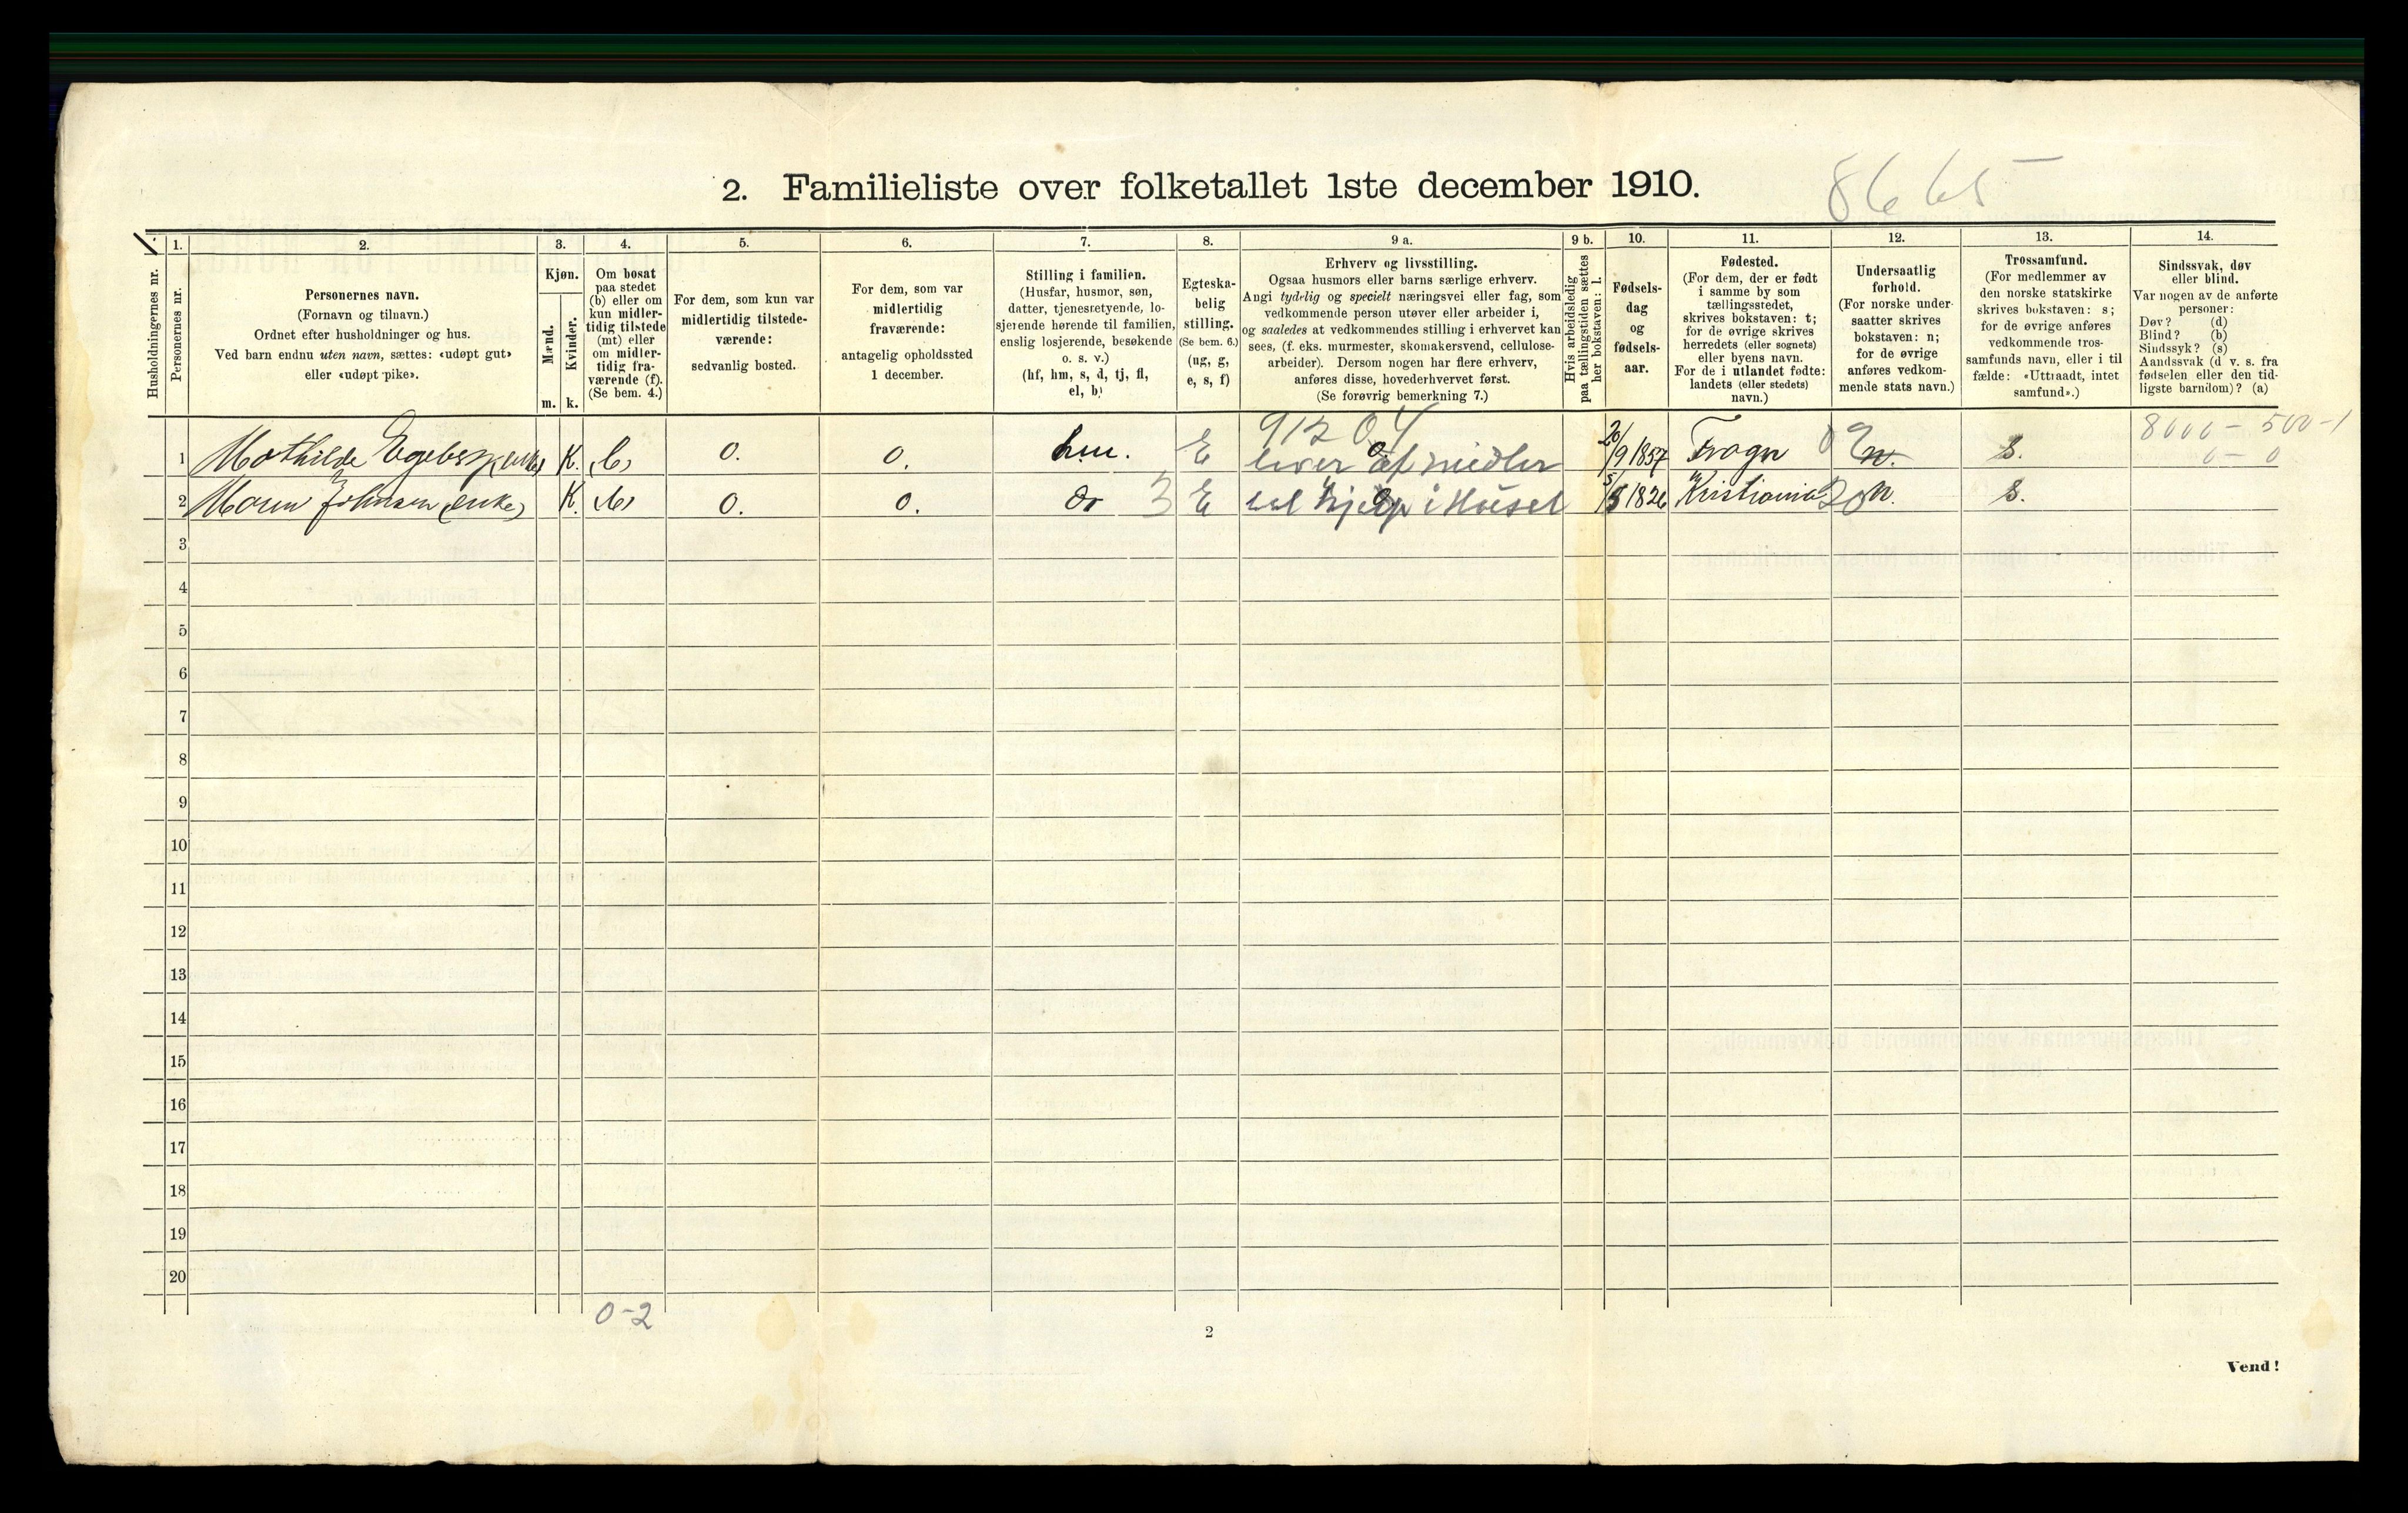 2. Familieliste over folketallet 1ste december 1910.
8665
Husholdningernes nr.
1. Personernes nr.
2. Personernes navn.
(Fornavn og tilnavn.)
Ordnet efter husholdninger og hus.
Ved barn endnu uten navn, sættes: «udøpt gut»
eller «udøpt pike».
3. Kjøn.
Mænd. m.
Kvinder. k.
4. Om bosat
paa stedet
(b) eller om
kun midler-
tidig tilstede
(mt) eller
om midler-
tidig fra-
værende (f).
(Se bem. 4.)
5. For dem, som kun var
midlertidig tilstede-
værende:
sedvanlig bosted.
6. For dem, som var
midlertidig
fraværende:
antagelig opholdssted
1 december.
7. Stilling i familien.
(Husfar, husmor, søn,
datter, tjenestetyende, lo-
sjerende hørende til familien,
enslig losjerende, besøkende
o. s. v.)
(hf, hm, s, d, tj, fl,
el, b)
8. Egteska-
belig
stilling.
(Se bem. 6.)
(ug, g,
e, s, f)
9 a. Erhverv og livsstilling.
Ogsaa husmors eller barns særlige erhverv.
Angi tydelig og specielt næringsvei eller fag, som
vedkommende person utøver eller arbeider i,
og saaledes at vedkommendes stilling i erhvervet kan
sees, (f. eks. murmester, skomakersvend, cellulose-
arbeider). Dersom nogen har flere erhverv,
anføres disse, hovederhvervet først.
(Se forøvrig bemerkning 7.)
9 b. Hvis arbeidsledig
paa tællingstiden sættes
her bokstaven: l.
10. Fødsels-
dag
og
fødsels-
aar.
11. Fødested.
(For dem, der er født
i samme by som
tællingsstedet,
skrives bokstaven: t;
for de øvrige skrives
herredets (eller sognets)
eller byens navn.
For de i utlandet fødte:
landets (eller stedets)
navn.)
12. Undersaatlig
forhold.
(For norske under-
saatter skrives
bokstaven: n;
for de øvrige
anføres vedkom-
mende stats navn.)
13. Trossamfund.
(For medlemmer av
den norske statskirke
skrives bokstaven: s;
for de øvrige anføres
vedkommende tros-
samfunds navn, eller i til
fælde: «Uttraadt, intet
samfund».)
14. Sindssvak, døv
eller blind.
Var nogen av de anførte
personer:
Døv? (d)
Blind? (b)
Sindssyk? (s)
Aandssvak (d v. s. fra
fødselen eller den tid-
ligste barndom)? (a)
91204 8000 - 500 - 1
1 Mathilde (enke) K. b 0. 0. hm. E 0 lever af midler 20/9 1857 Frogn n. s. 0 - 0
2 Maren Johnsen (enke) K. b 0. 0. 3 E hjelp i Huset 1826 Kristiania 20 n. s.
3
4
5
6
7
8
9
10
11
12
13
14
15
16
17
18
19
20
0-2
2
Vend!